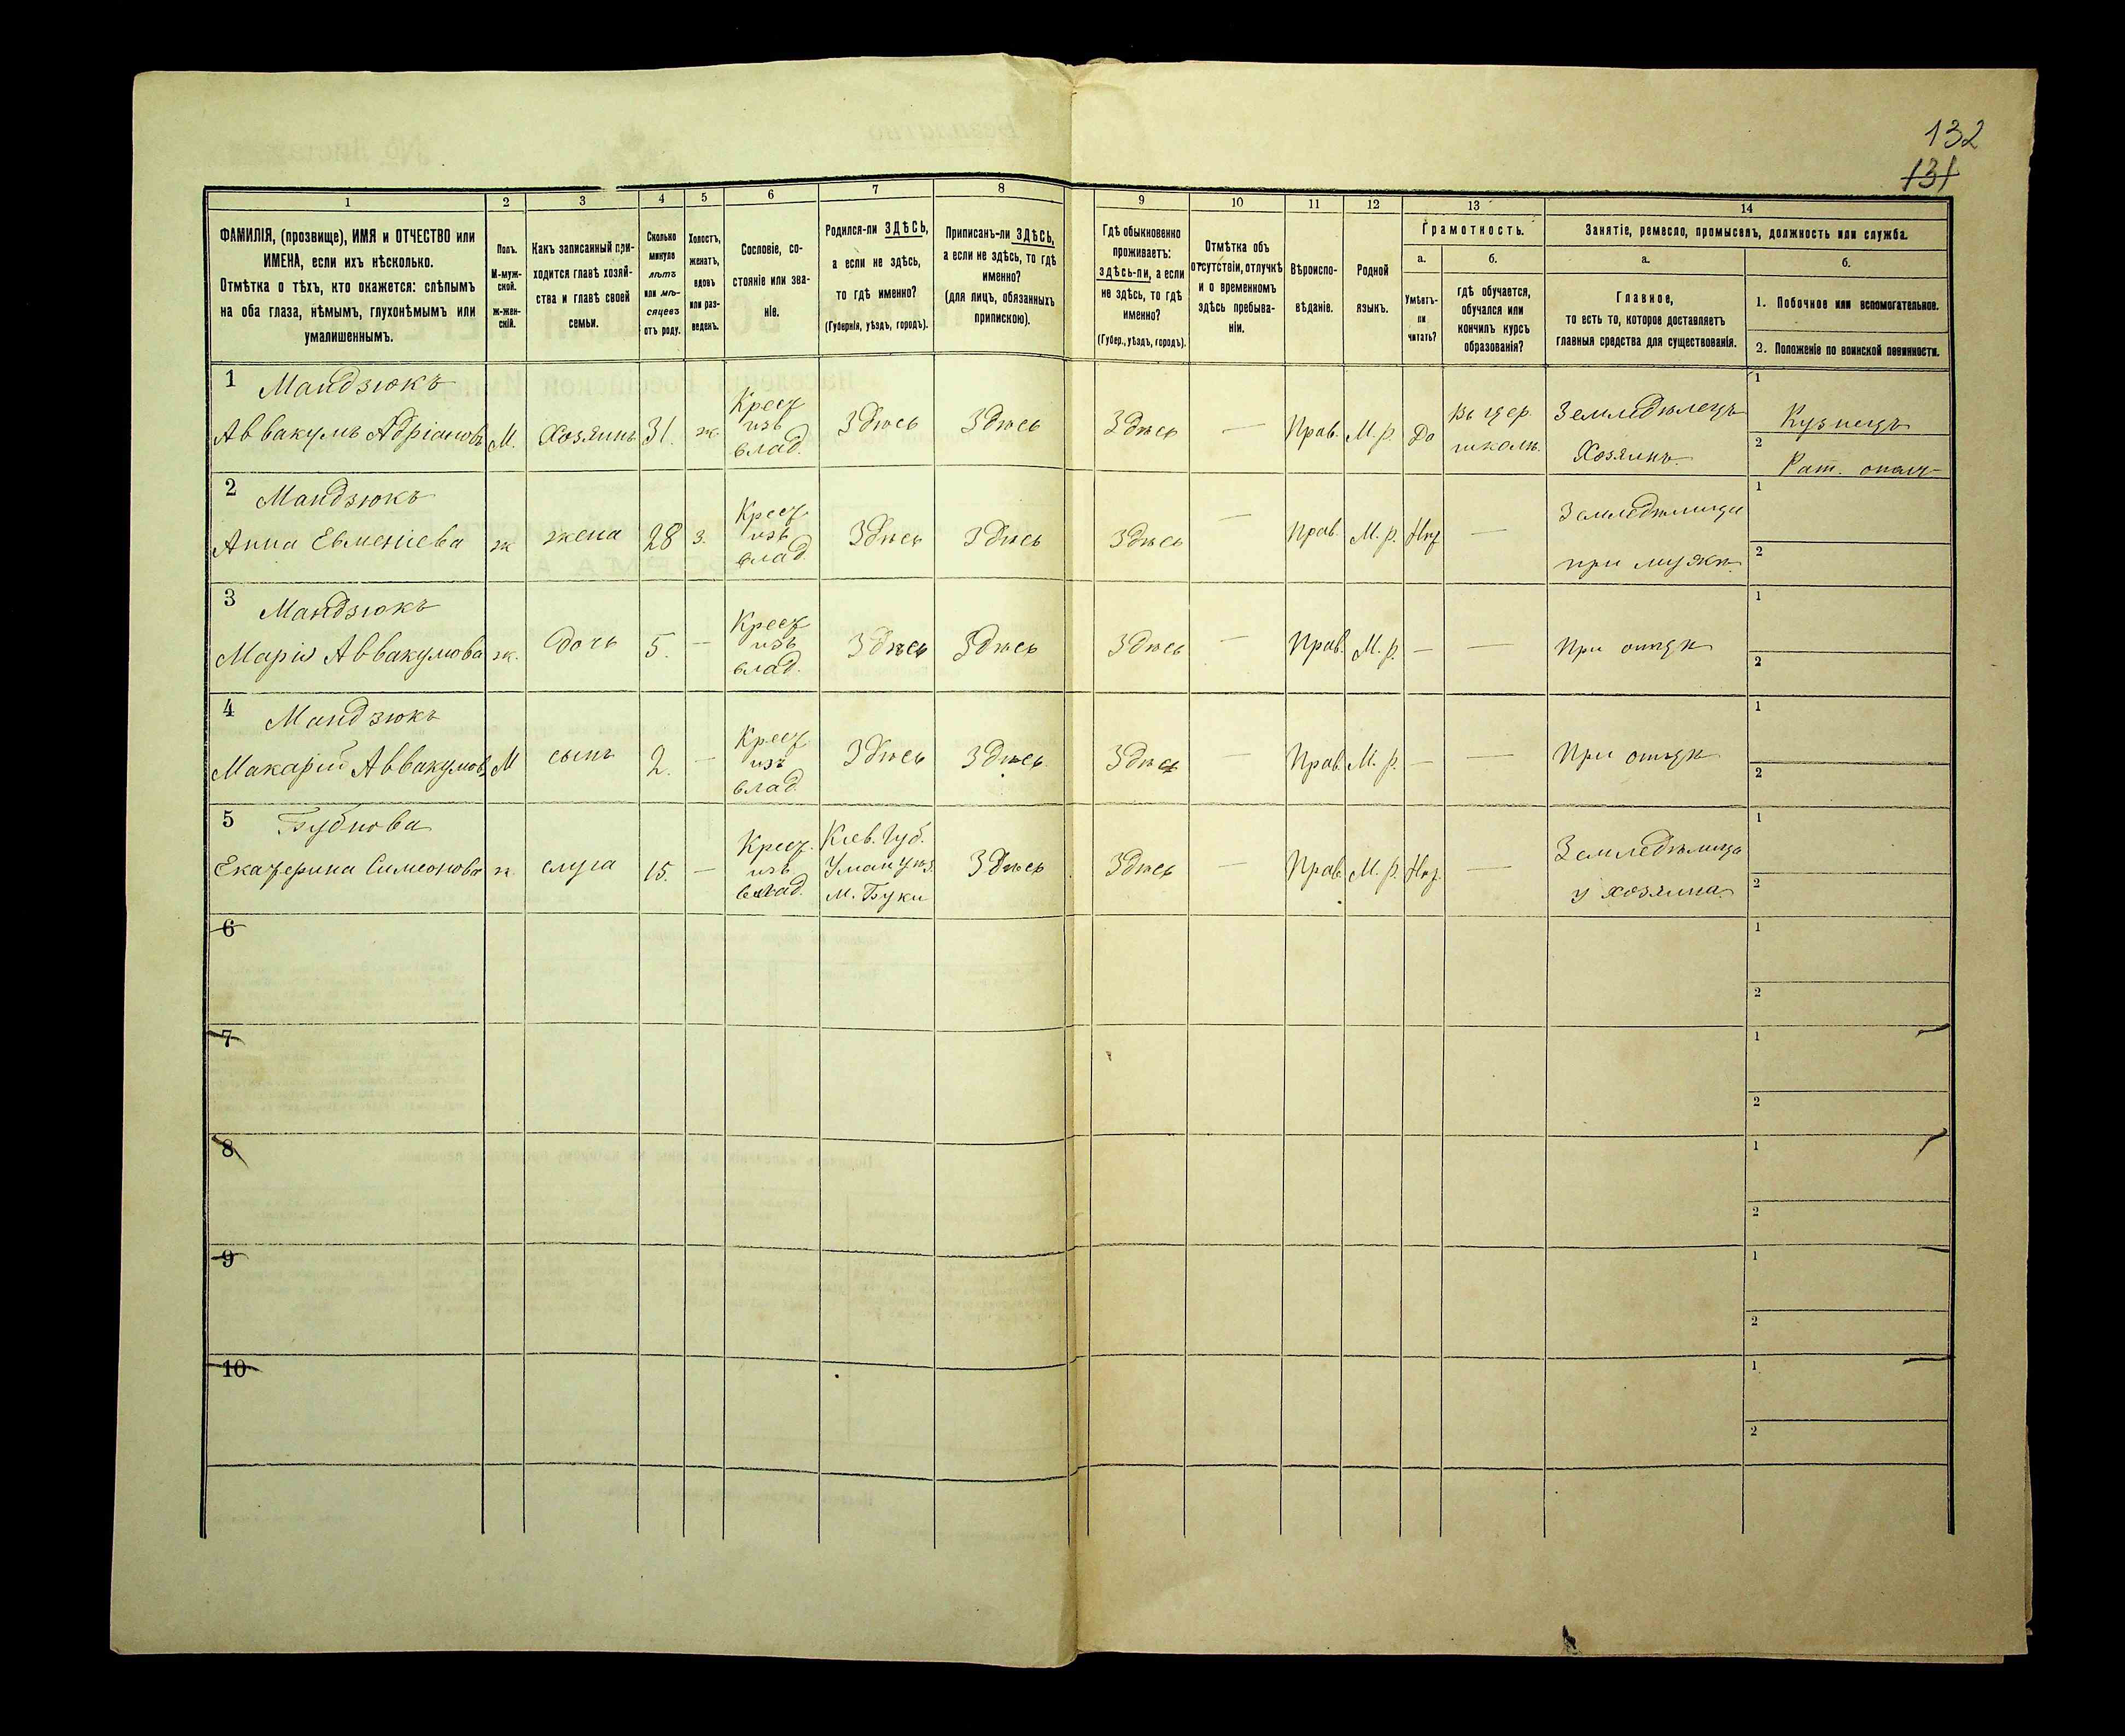 132
131
1
2
3
4
5
6
7
8
9
10
11
12
13
14
ФАМИЛІЯ, (прозвище), ИМЯ и ОТЧЕСТВО или
ИМЕНА, если ихъ нѣсколько.
Отмѣтка о тѣхъ, кто окажется: слѣпымъ
на оба глаза, нѣмымъ, глухонѣмымъ или
умалишеннымъ.
Полъ.
М-муж-
ской.
Ж-жен-
скій.
Какъ записанный при-
ходится главѣ хозяй-
ства и главѣ своей
семьи.
Сколько
минуло
лѣтъ
или мѣ-
сяцевъ
отъ роду.
Холостъ,
женатъ,
вдовъ
или раз-
веденъ.
Сословіе, со-
стояніе или зва-
ніе.
Родился-ли ЗДѢСЬ,
а если не здѣсь,
то гдѣ именно?
(Губернія, уѣздъ, городъ).
Приписанъ-ли ЗДѢСЬ,
а если не здѣсь, то гдѣ
именно?
(для лицъ, обязанныхъ
припискою).
Гдѣ обыкновенно
проживаетъ:
здѣсь-ли, а если
не здѣсь, то гдѣ
именно?
(Губер., уѣздъ, городъ).
Отмѣтка объ
отсутствіи, отлучкѣ
и о временномъ
здѣсь пребыва-
ніи.
Вѣроиспо-
вѣданіе.
Родной
языкъ.
Грамотность.
а.
Умѣетъ-
ли
читать?
б.
гдѣ обучается,
обучался или
кончилъ курсъ
образованія?
Занятіе, ремесло, промыселъ, должность или служба.
а.
Главное,
то есть то, которое доставляетъ
главныя средства для существованія.
б.
1. Побочное или вспомогательное.
2. Положеніе по воинской повинности.
1 Мандзюкъ
Аввакумъ Адріановъ М. Хозяинъ 31. ж. Крест изъ влад. Здѣсь Здѣсь Здѣсь — Прав. М. р. Да Въ цер. школѣ. Земледѣлецъ Хозяинъ. 1 Кузнецъ
2 Рат. ополч
2 Мандзюкъ
Анна Евменіева ж жена 28 з. Крест изъ влад. Здѣсь Здѣсь Здѣсь — Прав. М. р. Нѣт — Земледѣлица при мужѣ. 1
2
3 Мандзюкъ
Марія Аввакумова ж. дочь 5. — Крест изъ влад. Здѣсь Здѣсь Здѣсь — Прав. М. р. — — При отцѣ 1
2
4 Мандзюкъ
Макарій Аввакумов М сынъ 2. — Крест изъ влад. Здѣсь Здѣсь Здѣсь — Прав. М. р. — — При отцѣ 1
2
5 Бубнова
Екатерина Симеонова ж. слуга 15. — Крест. изъ влад. Кіев. Губ. Уман уѣз. М. Буки Здѣсь Здѣсь — Прав. М. р. Нѣт. — Земледѣлица у хозяина. 1
2
6
1
2
7
1
2
8
1
2
9
1
2
10
1
2